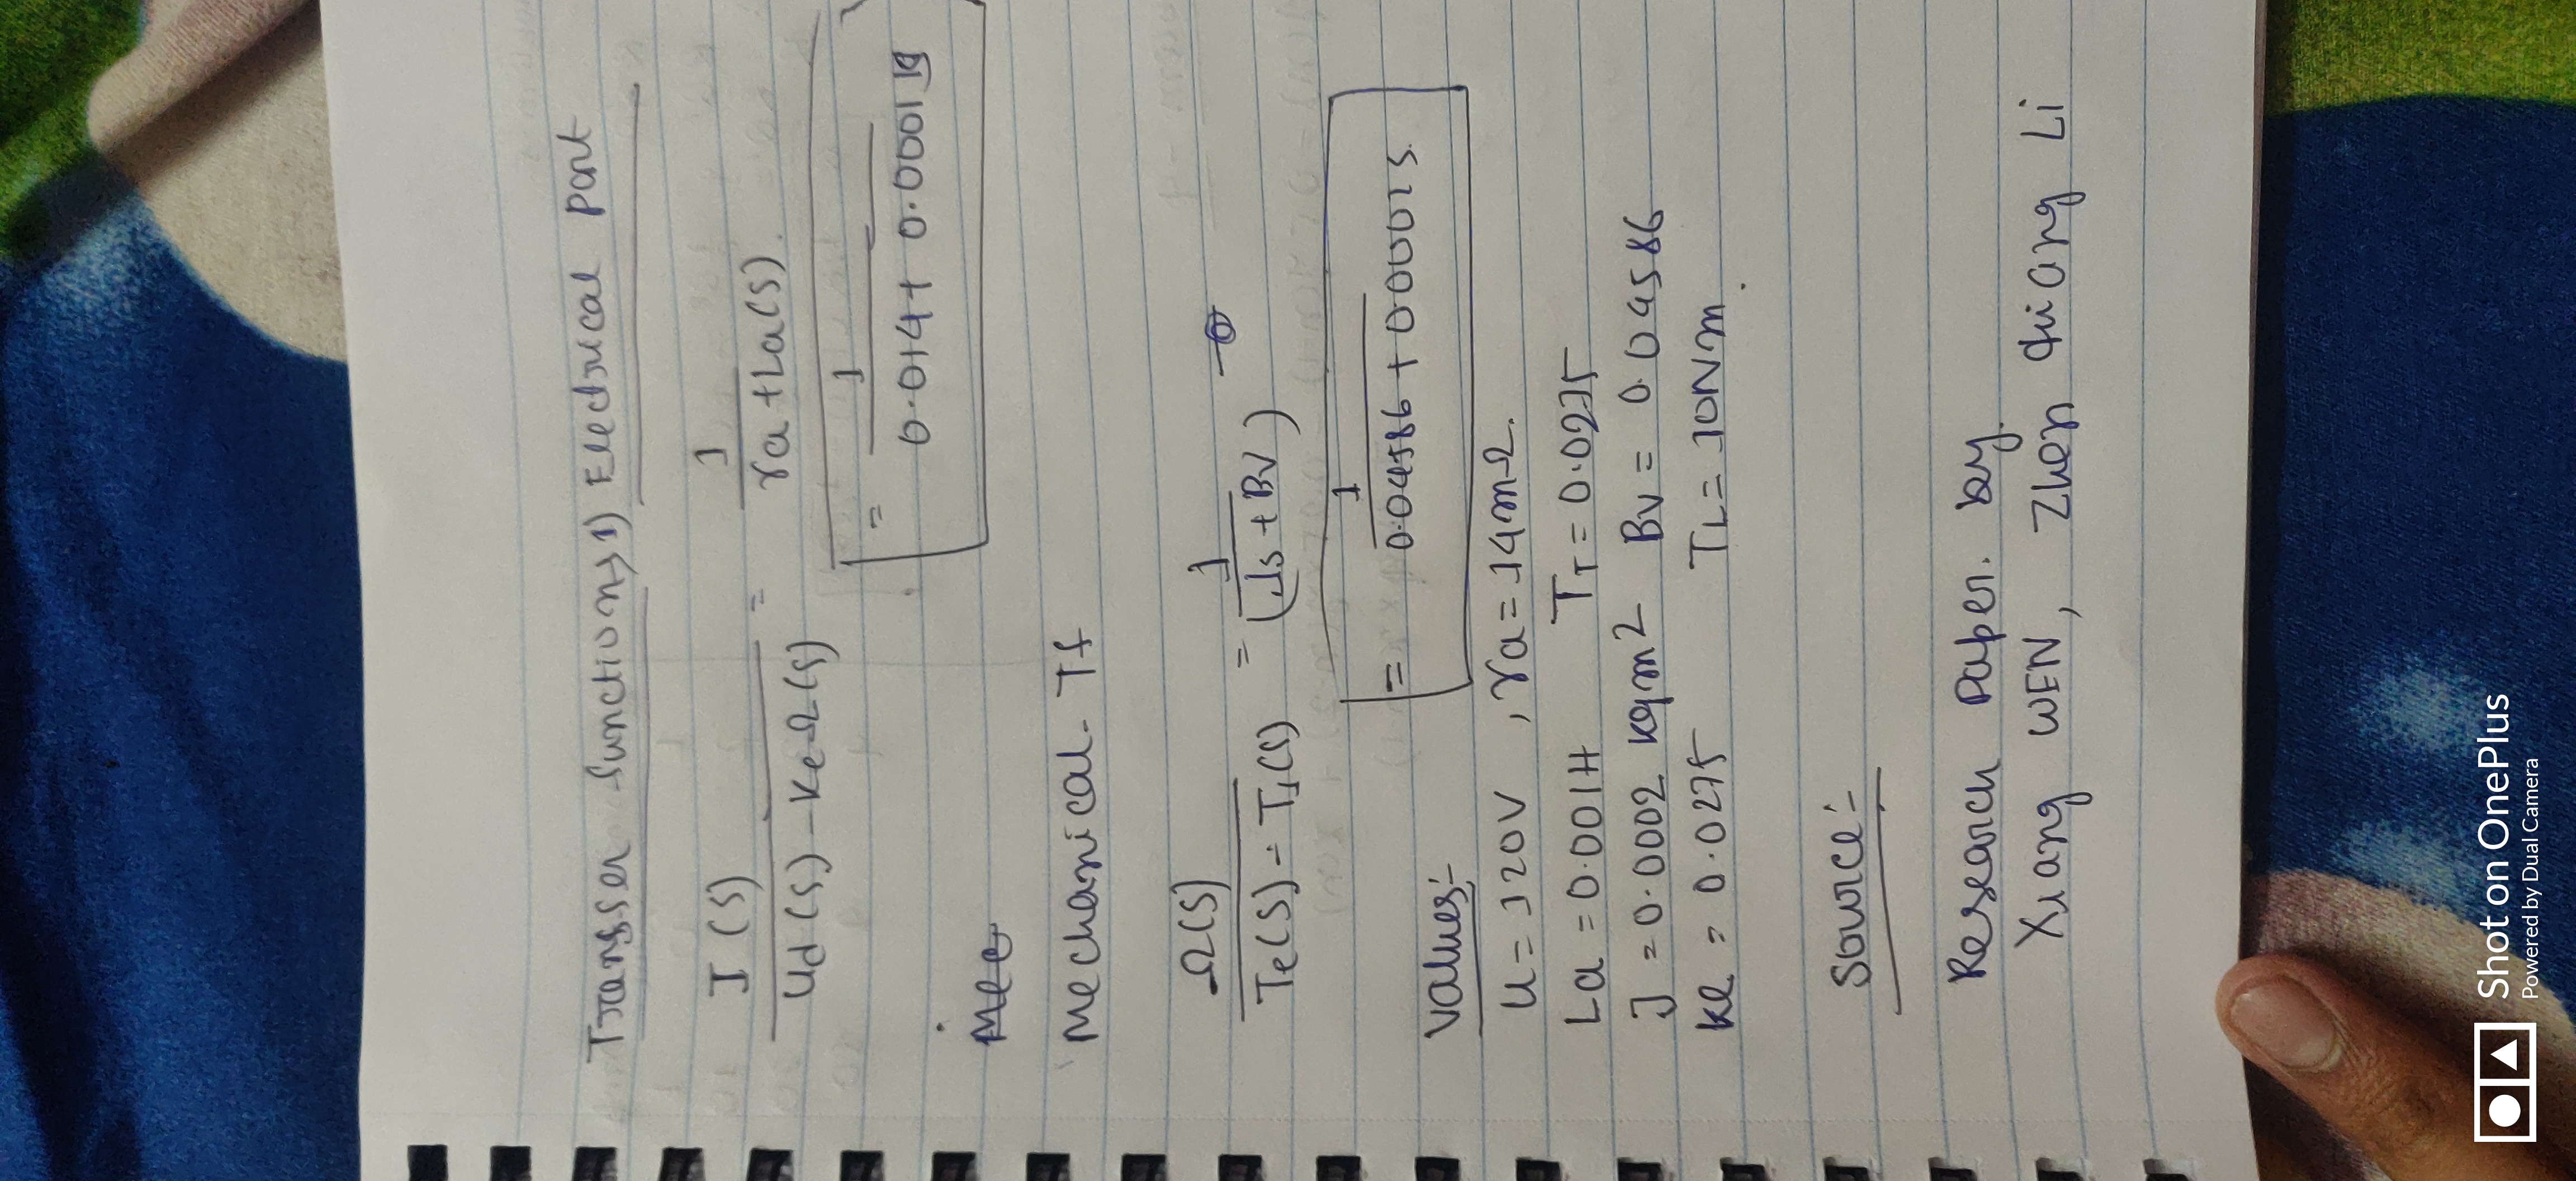 Transfer functions, 1) Electrical part
I(S) / Ud(S) - KeΩ(S) = 1 / ra + La(S).
= 1 / 0.014 + 0.0001
Mee
Mechanical - Tf
Ω(S) / Te(S) - (S) = 1 / (Js + BV)
= 1 / 0.04586 + 0.0002 S.
Values:-
U = 120V , ra = 14mΩ.
La = 0.001H TT = 0.0275
J = 0.0002 kgm2 BV = 0.04586
Ke = 0.0275 TL = 10Nm.
Source:-
Research Paper. by.
Xiang WEN, Zhen Qiang Li
Shot on OnePlus
Powered by Dual Camera